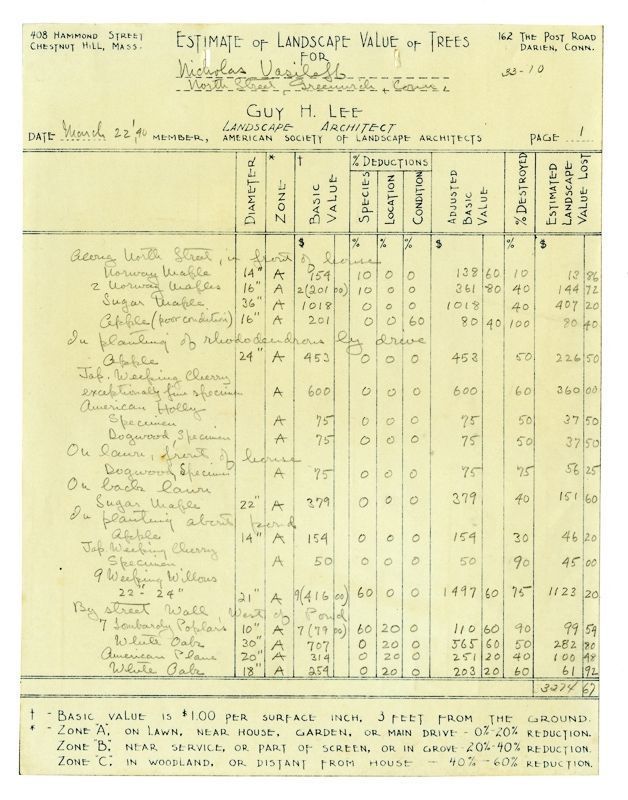 408 HAMMOND STREET ESTIMATE OF LANDSCAPE VALUE OF TREES 162 THE POST ROAD
CHESTNUT HILL, MASS. FOR DARIEN, CONN.
Nicholas Vasiloff 33-10
North Street, Greenwich, Conn.
GUY H. LEE
LANDSCAPE ARCHITECT
DATE March 22, '40 MEMBER, AMERICAN SOCIETY OF LANDSCAPE ARCHITECTS PAGE 1
DIAMETER * ZONE † BASIC VALUE % DEDUCTIONS SPECIES LOCATION CONDITION ADJUSTED BASIC VALUE % DESTROYED ESTIMATED LANDSCAPE VALUE LOST
$ % % % $ % $
Along North Street, in front of house
Norway Maple 14" A 154 10 0 0 138 60 10 13 86
2 Norway Maples 16" A 2(201 00) 10 0 0 361 80 40 144 72
Sugar Maple 36" A 1018 0 0 0 1018 40 407 20
Apple (poor condition) 16" A 201 0 0 60 80 40 100 80 40
In planting of rhododendrons by drive
Apple 24" A 453 0 0 0 453 50 226 50
Jap. Weeping Cherry
exceptionally fine specimen A 600 0 0 0 600 60 360 00
American Holly
Specimen A 75 0 0 0 75 50 37 50
Dogwood, Specimen A 75 0 0 0 75 50 37 50
On lawn, front of house
Dogwood, Specimen A 75 0 0 0 75 75 56 25
On back lawn
Sugar Maple 22" A 379 0 0 0 379 40 151 60
In planting about pond
Apple 14" A 154 0 0 0 154 30 46 20
Jap. Weeping Cherry
Specimen A 50 0 0 0 50 90 45 00
9 Weeping Willows
22"- 24" 21" A 9(416 00) 60 0 0 1497 60 75 1123 20
By street Wall West of Pond
7 Lombardy Poplars 10" A 7(79 00) 60 20 0 110 60 90 99 54
White Oak 30" A 707 0 20 0 565 60 50 282 80
American Plane 20" A 314 0 20 0 251 20 40 100 48
White Oak 18" A 254 0 20 0 203 20 60 61 92
3274 67
† - BASIC VALUE IS $1.00 PER SURFACE INCH, 3 FEET FROM THE GROUND.
* - ZONE "A", ON LAWN, NEAR HOUSE, GARDEN, OR MAIN DRIVE - 0%-20% REDUCTION.
ZONE "B", NEAR SERVICE, OR PART OF SCREEN, OR IN GROVE - 20%-40% REDUCTION.
ZONE "C", IN WOODLAND, OR DISTANT FROM HOUSE - 40% - 60% REDUCTION.